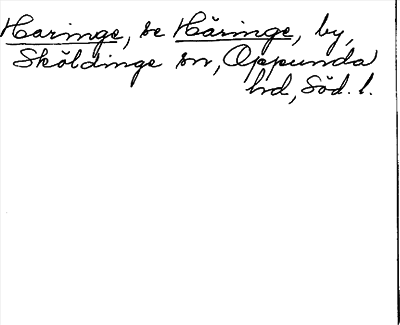 Haringe, se Häringe, by,
Sköldinge sn, Oppunda
hd, Söd. l.